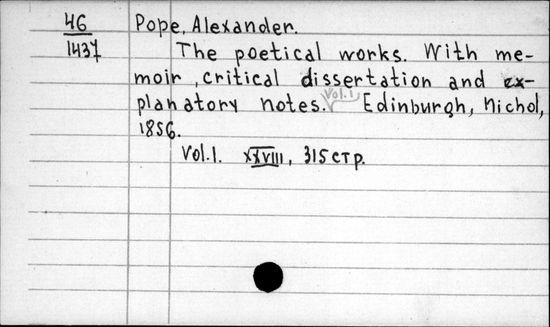 46 Pope, Alexander.
1437 The poetical works. With me-
moir, critical dissertation and ex-
planatory notes. Vol.1 Edinburgh, Nichol,
1856.
Vol.1. XXVIII, 315 стр.